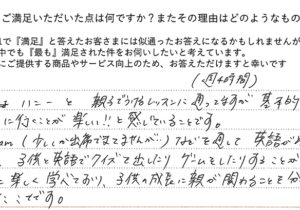 ご満足いただいた点は何ですか？またその理由はどのようなもの
で『満足』と答えたお客さまには似通ったお答えになるかもしれませんが
中でも『最も』満足された件をお伺いしたいと考えています。
にご提供する商品やサービス向上のため、お答えいただけますと幸いです
(週4時間)
は ハニーと 親子で うけるレッスンに通ってますが 基本的
に行くことが楽しい!!と感じていることです。
(少ししか出席できてませんが) などを通して 英語が
、子供と英語でクイズを出したり ゲームをしたりすることが
に楽しく学べており、子供の成長に親が関わることを
ことです。